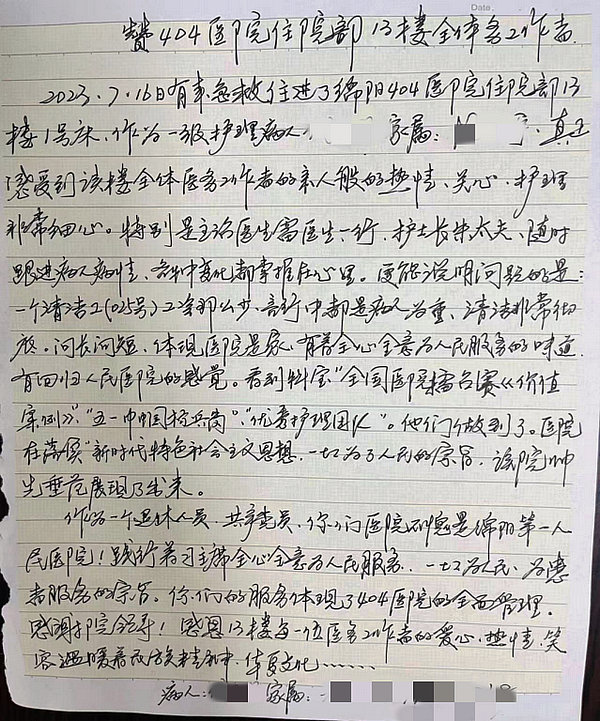 赞404医院住院部13楼全体务工作者
2023.7.16日有幸急救住进了绵阳404医院住院部13
楼1号床,作为一级护理病人 家属: 真正
感受到该楼全体医务工作者的亲人般的热情、关心、护理
非常细心。特别是主治医生雷医生一行,护士长朱太夫、随时
跟进病人病情,各种变化都掌握在心里。更能说明问题的是:
一个清洁工(025号)工资那么少,言行中都是病人为重,清洁非常彻
底。问长问短,体现医院是家,有着全心全意为人民服务的味道
有回归人民医院的感觉。看到科室“全国医院擂台赛《价值
案例》”“五一巾帼标兵岗”“优秀护理团队”。他们做到了。医院
在落实“新时代特色社会主义思想,一切为了人民的宗旨,该院帅
先垂范展现了出来。
作为一个退休人员,共产党员,你们医院不愧是绵阳第一人
民医院!践行着习主席全心全意为人民服务,一切为民,为患
者服务的宗旨。你们的服务体现了404医院的全面管理。
感谢扵院领导!感恩13楼每一位医务工作者的爱心,热情,笑
容温暖着民族精神,华夏文化……
病人: 家属: